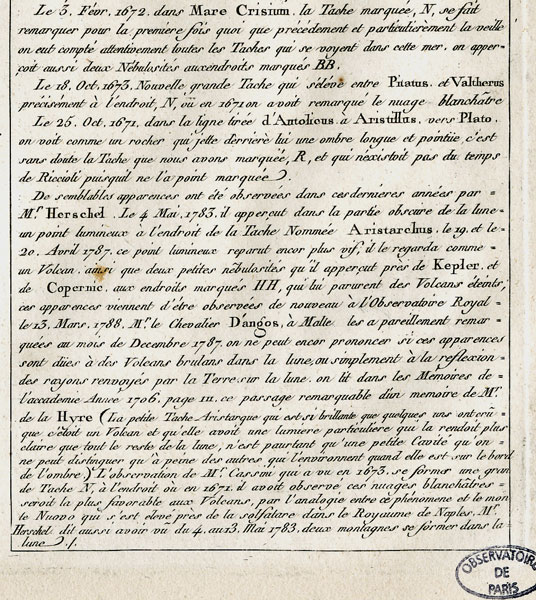 Le 3. Févr. 1672. dans Mare Crisium, la Tache marquée, N, se fait
remarquer pour la premiere fois quoi que précédement et particulièrement la veille
on eut compté attentivement toutes les Taches qui se voyent dans cette mer. on apper=
çoit aussi deux Nébulosités aux endroits marqués BB.
Le 18. Oct. 1673. Nouvelle grande Tache qui s'élévé entre Pitatus. et Valtherus
précisément à l'endroit, N, où en 1671 on avoit remarqué le nuage blanchâtre
Le 25. Oct. 1671. dans la ligne tirée d'Antolicus à Aristillus, vers Plato.
on voit comme un rocher qui jette derrière lui une ombre longue et pointüe, c'est
sans doute la Tache que nous avons marquée, R, et qui n'existoit pas du temps
de Riccioli puisqu'il ne l'a point marquée.
De semblables apparences ont été observées dans ces dernières années par=
Mr. Herschel. Le 4 Mai, 1783. il apperçut dans la partie obscure de la lune=
un point lumineux à l'endroit de la Tache Nommée Aristarchus, le 19. et le=
20. Avril 1787. ce point lumineux reparut encor plus vif, il le regarda comme=
un Volcan. ainsi que deux petites nébulosités qu'il apperçut près de Kepler, et
de Copernic. aux endroits marqués HH, qui lui parurent des Volcans éteints,
ces apparences viennent d'être observées de nouveau à l'Observatoire Royal=
le 13. Mars. 1788. Mr. le Chevalier Dangos, à Malte les a pareillement remar=
quées au mois de Decembre 1787. on ne peut encor prononcer si ces apparences
sont dües à des Volcans brulans dans la lune, ou simplement à la reflexion=
des rayons renvoyés par la Terre sur la lune. on lit dans les Mémoires de=
l'accademie Année 1706, page 111. ce passage remarquable d'un memoire de Mr.
de la Hyre (La petite Tache Aristarque qui est si brillante que quelques uns ont crû=
que c'étoit un Volcan et qu'elle avoit une lumiere particulière qui la rendoit plus
claire que tout le reste de la lune, n'est pourtant qu'une petite Cavité qu'on=
ne peut distinguer qu'à peine des autres qui l'environnent quand elle est sur le bord
de l'ombre) L'observation de Mr. Cassini qui a vu en 1673. se former une gran
de Tache N, à l'endroit où en 1671. il avoit observé ces nuages blanchâtres=
seroit la plus favorable aux Volcans, par l'analogie entre ce phénomene et le mon
te Nuovo qui s'est élevé près de la solfatare dans le Royaume de Naples. Mr.
Herschel dit aussi avoir vu du 4. au 13. Mai 1783. deux montagnes se former dans la
lune./.
OBSERVATOIRE
DE
PARIS